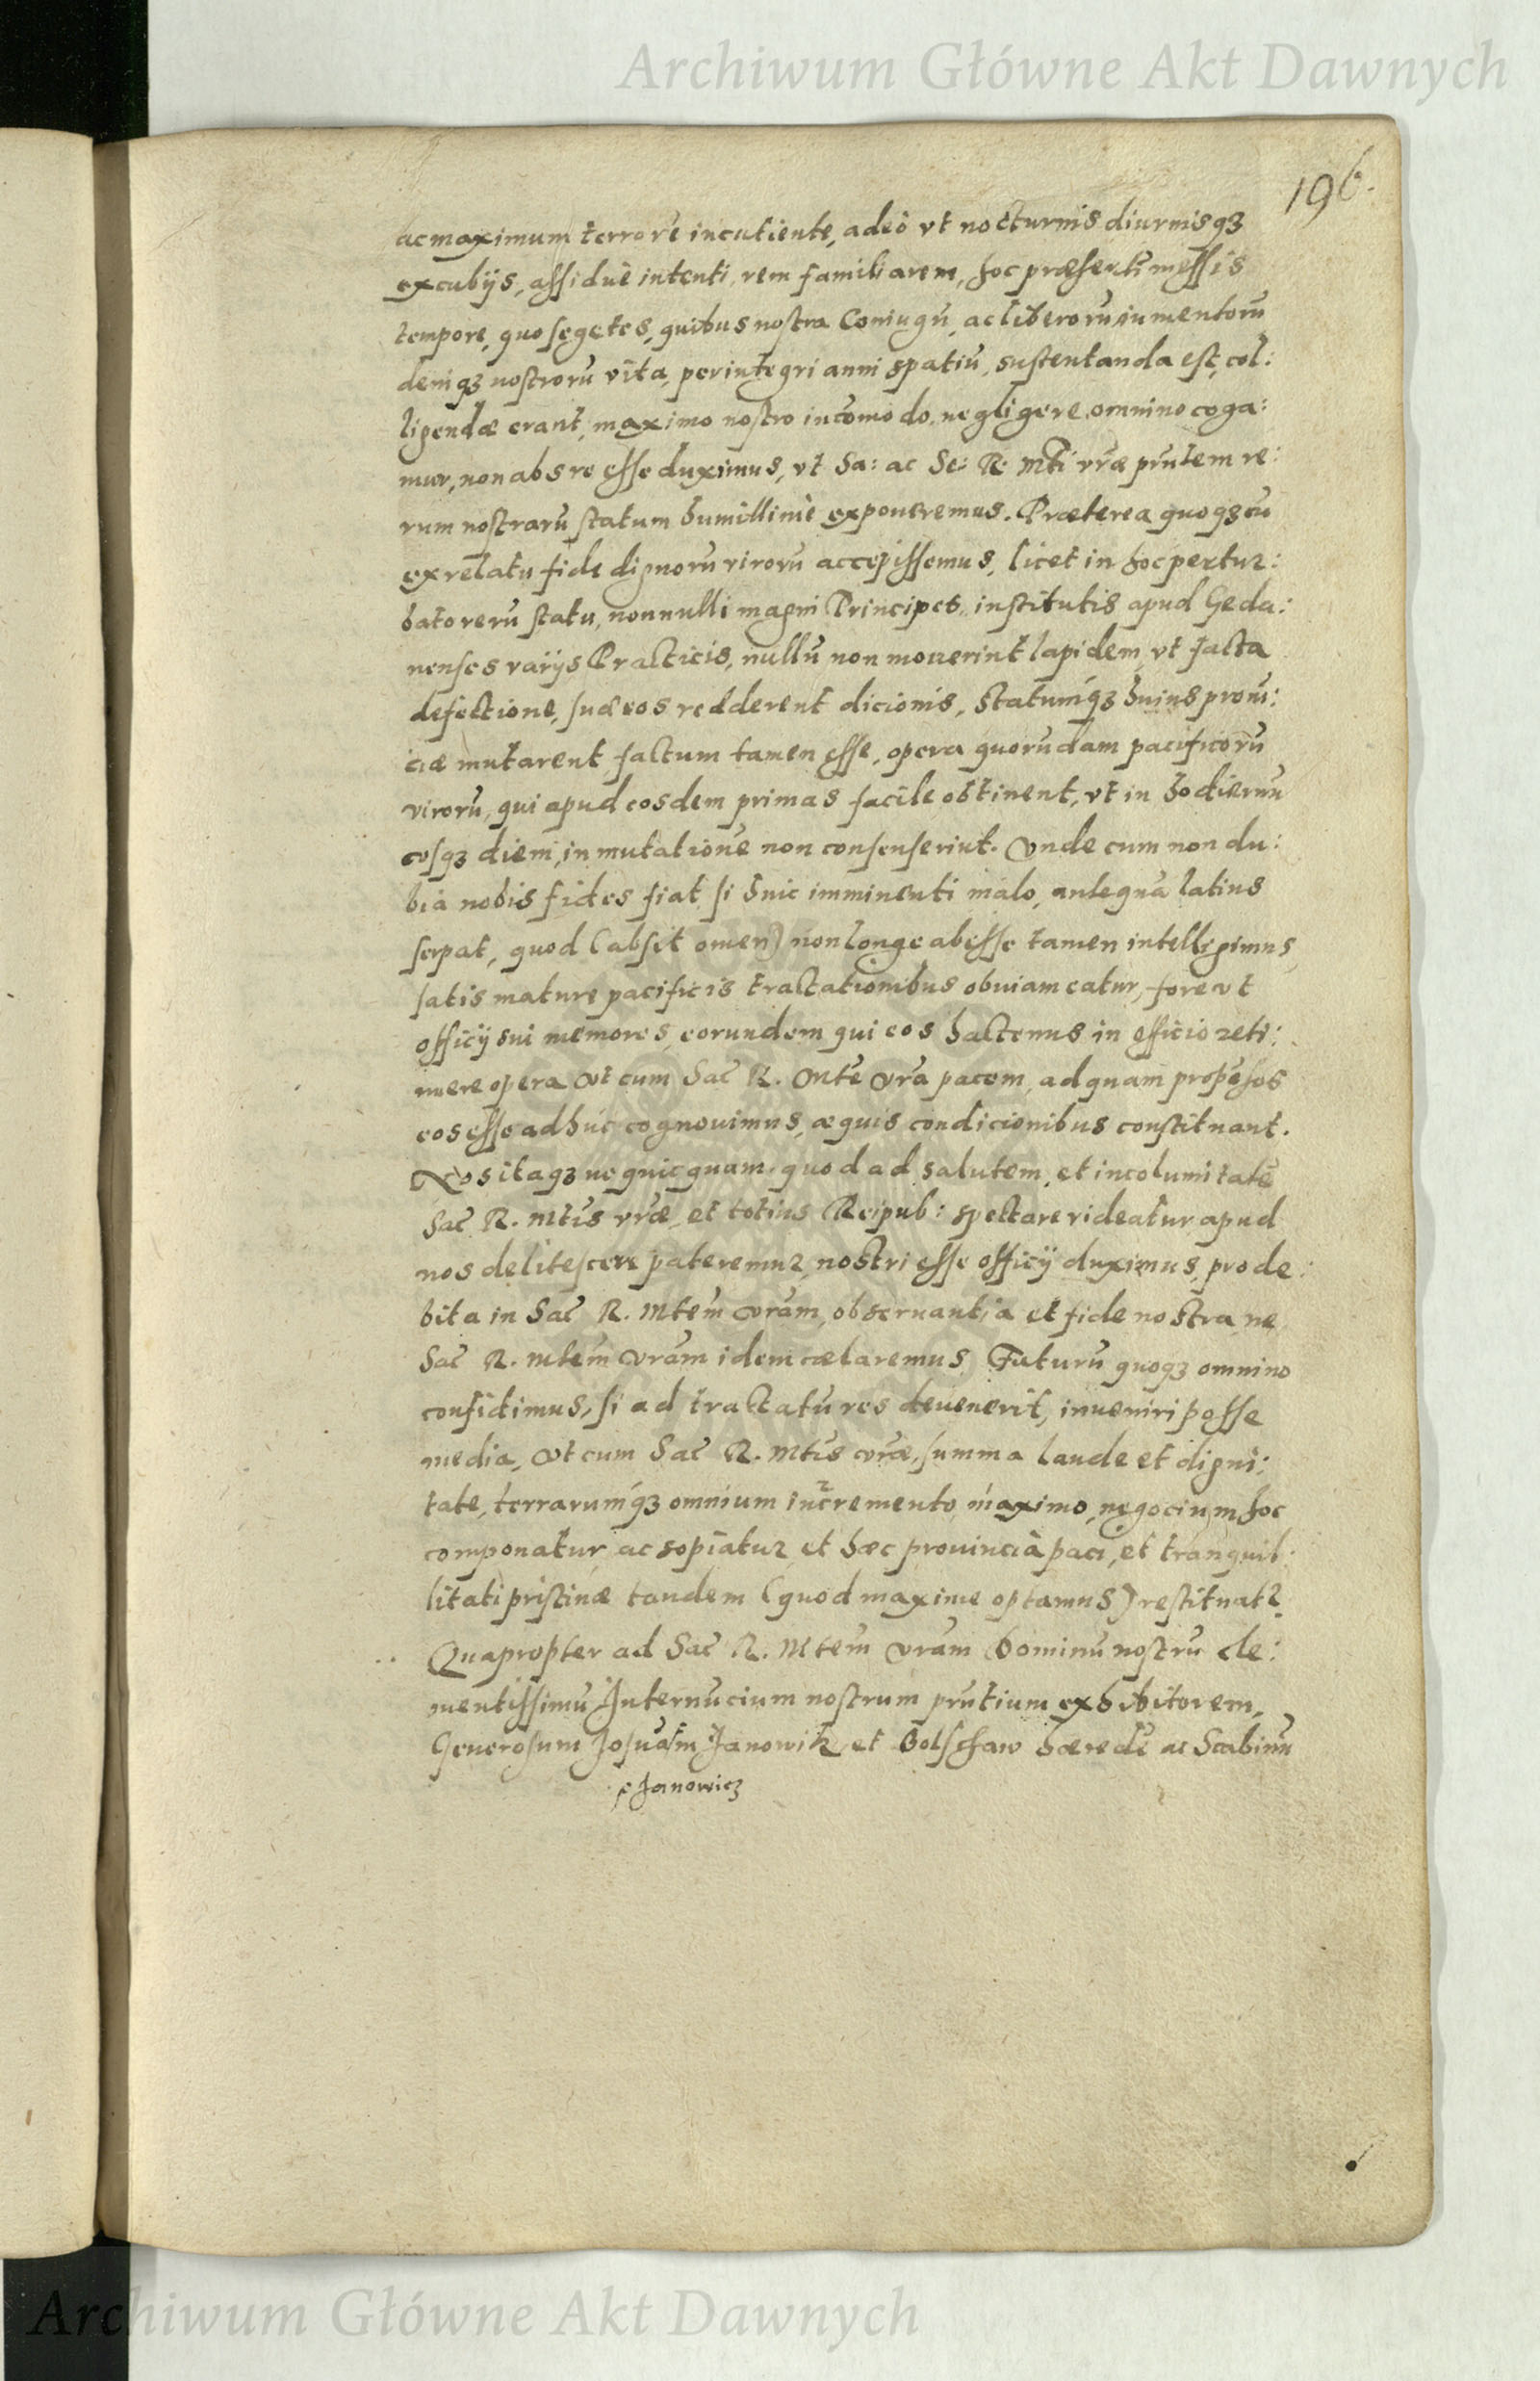 Archiwum Główne Akt Dawnych
196.
ac maximum terrorē incutiente, adeò vt nocturnis diurnisqꝫ
excubijs, assiduè intenti, rem familiarem, hoc præsertĩ messis
tempore, quo segetes, quibus nostra Coniugũ, ac liberorũ iumentorũ
deniqꝫ nostrorũ vita, per integri anni spatiũ, sustentanda est, col:
ligendæ erant, maximo nostro incōmodo, negligere omnino coga:
mur, non abs re esse duximus, vt Sa: ac Se: R. Mti vræ pñtem re:
rum nostrarũ statum humillimè exponeremus. Præterea quoqꝫ cũ
ex relatu fide dignorũ virorũ accepissemus, licet in hoc pertur:
bato rerũ statu, nonnulli magni Principes, institutis apud Geda:
nenses varijs Practicis, nullũ non mouerint lapidem, vt facta
defectione, suæ eos redderent dicionis, statumqꝫ huius prouī:
ciæ mutarent factum tamen esse, opera quorũdam pacificorũ
virorũ, qui apud eosdem primas facile obtinent, vt in hodiernũ
vsqꝫ diem, in mutationē non consenserint. Vnde cum non du:
bia nobis fides fiat, si huic imminenti malo, antequã latius
serpat, quod (absit omen) non longe abesse tamen intelligimus,
satis mature pacificis tractationibus obuiam eatur, fore vt
officij sui memores, eorundem qui eos hactenus in officio reti:
nuere opera vt cum Sac R. Mte vra pacem, ad quam propēsos
eos esse adhuc cognouimus, æquis condicionibus constituant.
Nos itaqꝫ ne quicquam, quod ad salutem, et incolumitatē
Sac R. Mtis vræ, et totius Reipub: spectare videatur apud
nos delitescere pateremur, nostri esse officij duximus, pro de:
bita in Sac R. Mtem vram, obseruantia et fide nostra, ne
Sac R. Mtem vram idem cælaremus. Futurũ quoqꝫ omnino
confidimus, si ad tractatũ res deuenerit, inueniri posse
media, vt cum Sac R. Mtis vræ, summa laude et digni:
tate, terrarumqꝫ omnium incremento maximo, negocium hoc
componatur ac sopiatur, et hæc prouincia paci, et tranquil:
litati pristinæ tandem (quod maxime optamus) restituatr.
Quapropter ad Sac R. Mtem vram Dominũ nostrũ cle:
mentissimũ Internuncium nostrum pñtium exhibitorem,
Generosum Josuam Janowitz, et Golschaw hæredē ac Scabinũ
Janowicz
Archiwum Główne Akt Dawnych